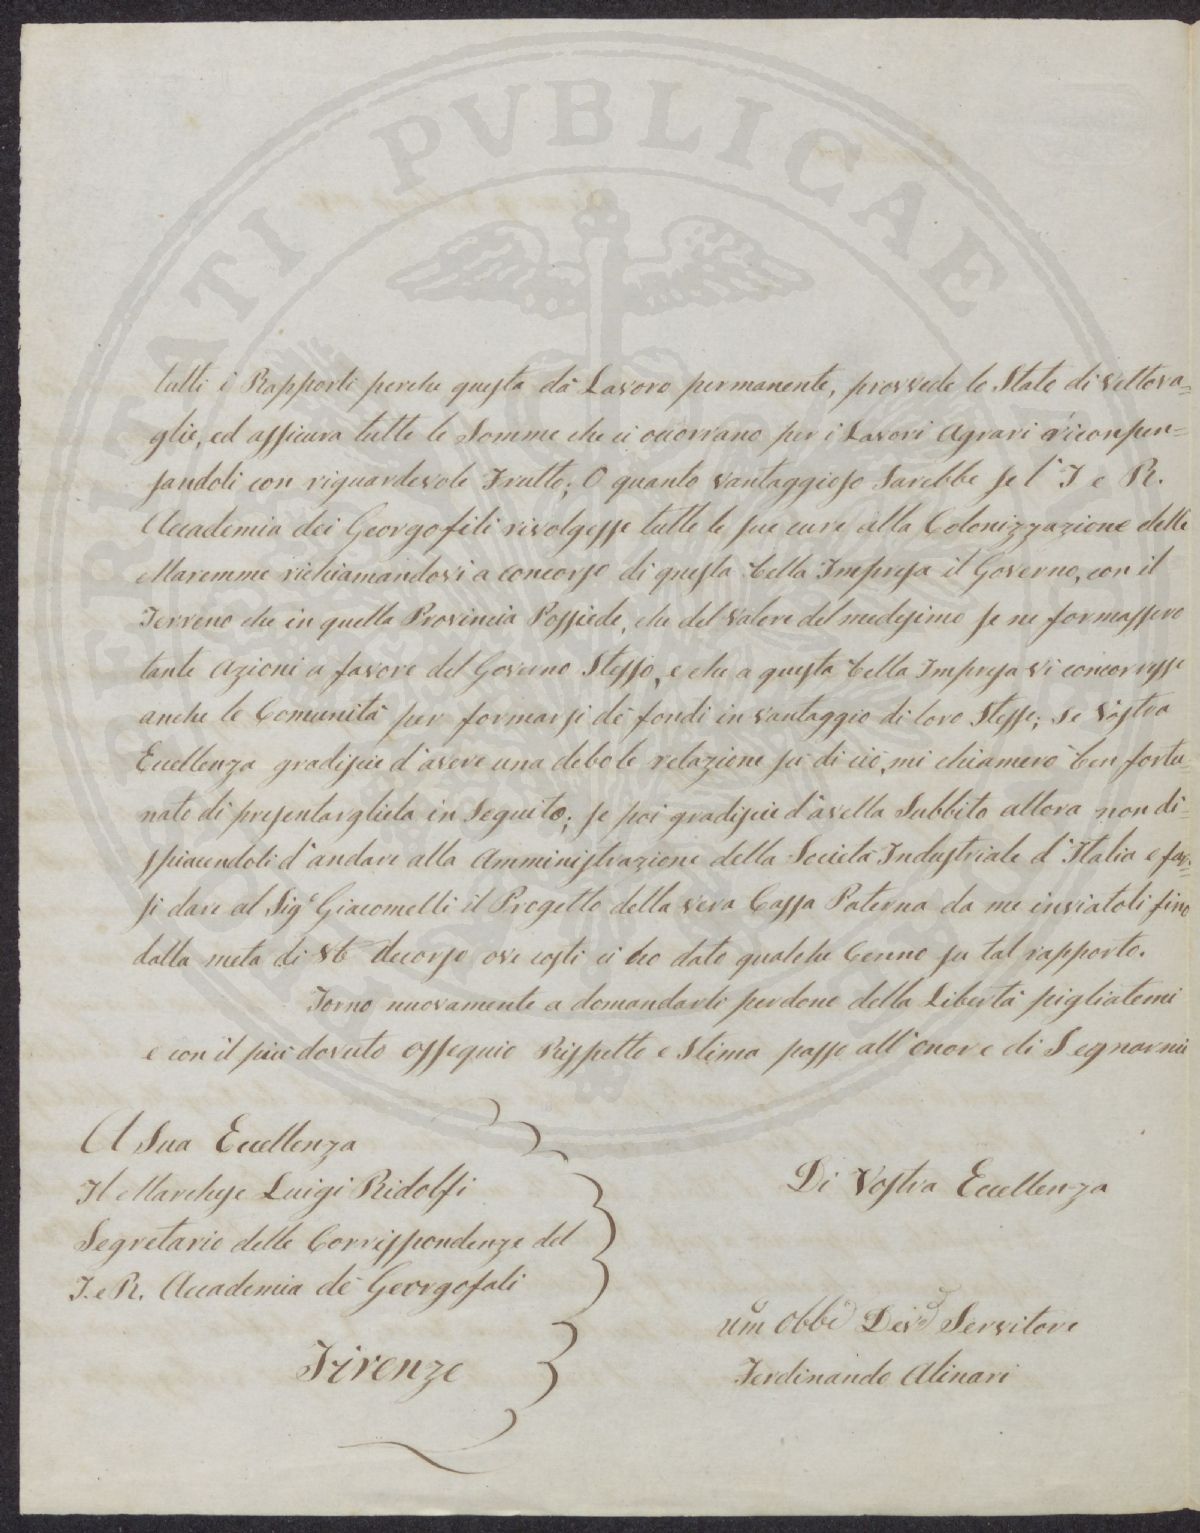 PROSPERITATI PUBLICAE
tutti i Rapporti perche questa dà Lavoro permanente, provvede lo Stato di vettova=
glie, ed assicura tutte le Somme che ci occorrano per i Lavori Agrari riconpen=
sandoli con riguardevole Frutto; O quanto vantaggioso Sarebbe se l'I e R.
Accademia dei Georgofili rivolgesse tutte le sue cure alla Colonizzazione delle
Maremme richiamandovi a concorso di questa bella Impresa il Governo, con il
Terreno che in quella Provincia Possiede, che del valore del medesimo se ne formassero
tante azioni a favore del Governo Stesso, e che a questa bella Impresa vi concorresse
anche le Comunità per formarsi dè fondi in vantaggio di loro Stesse; se Vostra
Eccellenza gradisce d'avere una debole relazione su di ciò, mi chiamerò ben fortu=
nato di presentargliela in Seguito; se poi gradisce d'avella Subbito allora non di=
spiacendoli d'andare alla Amministrazione della Società Industriale d'Italia e far=
si dare al Sig.e Giacomelli il Progetto della vera Cassa Paterna da me inviatoli fino
dalla metà di 8b decorso ove costì ci ho dato qualche Cenno su tal rapporto.
Torno nuovamente a domandarli perdono della Libertà pigliatemi
e con il più dovuto ossequio Rispetto e Stima passo all'onore di Segnarmi
A Sua Eccellenza
Il Marchese Luigi Ridolfi
Segretario delle Corrispondenze del
I. e R. Accademia dè Georgofali
Firenze
Di Vostra Eccellenza
Um.o Obb.o Dev.o Servitore
Ferdinando Alinari